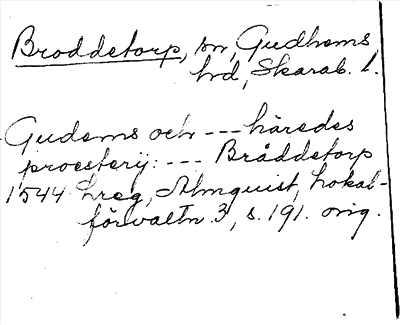 Broddetorp, sn, Gudhems
hd, Skarab. l.
Gudems och --- häredes
proesterij: --- Bråddetorp
1544 hreg, Almquist, Lokal-
förvaltn. 3, s. 191. orig.